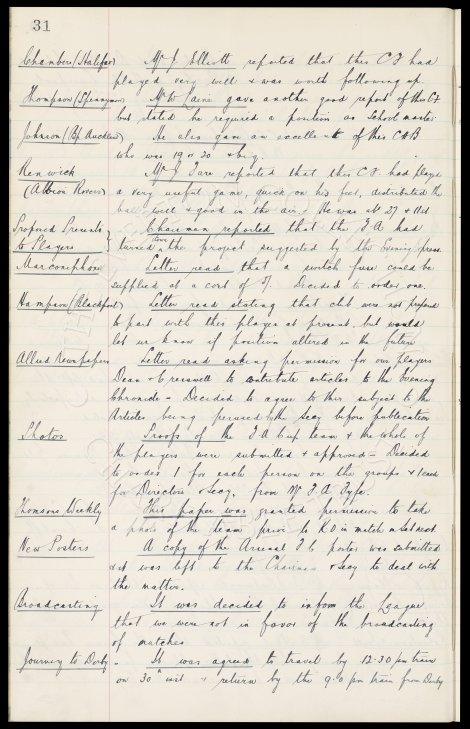 31
Chambers (Halifax) Mr J Elliott reported that this C F had
played very well & was worth following up.
Thompson (Spennymoor) Mr W gave another good report of this C F
but stated he required a position as School master.
Johnson (Bp Auckland) He also gave an excellent of this C H B
who was 19 or 20 & big.
Renwick Mr J reported that this C F had played
(Albion Rovers) a very useful game, quick on his feet, distributed the
ball well & good in the air. He was at 27 & 11st
Proposed Presents Chairman reported that the F A had
to Players turned down the project suggested by the Evening press
Marconiphone Letter read that a switch fuse could be
supplied at a cost of Decided to order one.
Hampson (Blackpool) Letter read stating that club were not prepared
to part with this player at present, but would
let us know if position altered in the future
Allied Newspapers Letter read asking permission for our players
Dean & Cresswell to contribute articles to the Evening
Chronicle - Decided to agree to this subject to the
Articles being perused by the Secy before publication
Photos Proofs of the F A Cup team & the whole of
the players were submitted & approved - Decided
to order 1 for each person on the groups & 1 each
for Directors & Secy. from Mr
Thomsons Weekly This paper was granted permission to take
a photo of the team prior to K O in match
New Posters A copy of the Arsenal F C poster was submitted
& it was left to the Chairman & Secy to deal with
the matter.
Broadcasting It was decided to inform the League
that we were not in favor of the broadcasting
of matches
Journey to Derby - It was agreed to travel by 12.30 pm train
on 30th inst & return by the 9.0 pm train from Derby